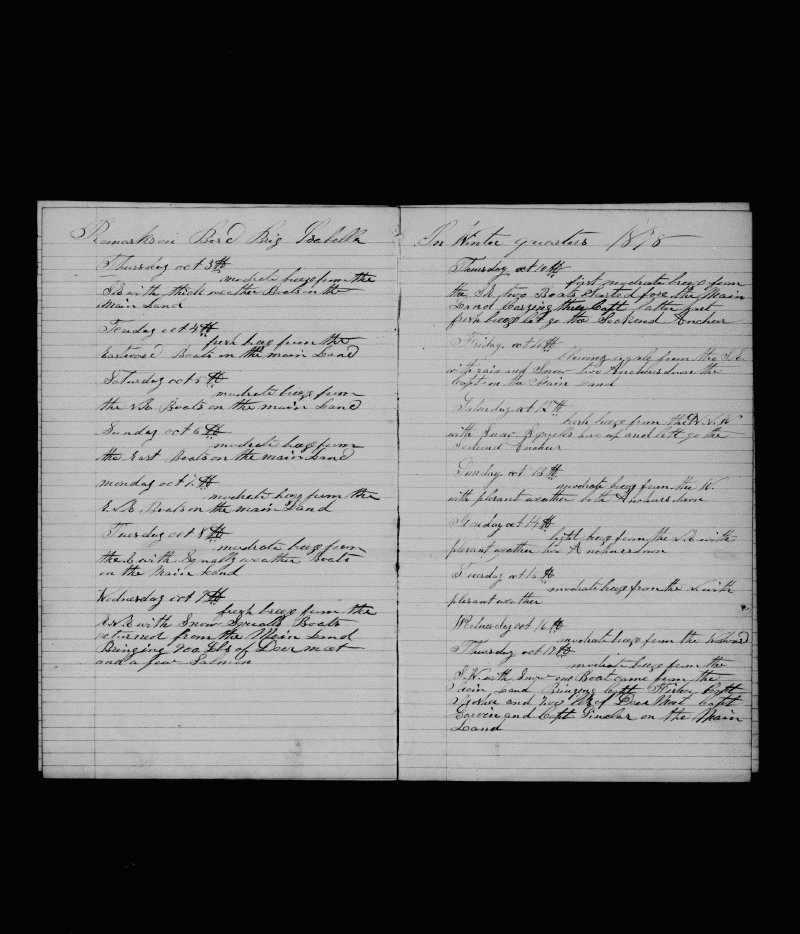 Remarks on Bord Brig Isabella
Thursday oct 3th
modrate breeze from the
S.E with thick weather Boats on the
Main Land
oct 4th
fresh breeze from the
Eastword Boats on the main Land
Saturday oct 5th
modrate breeze from
the N.E. Boats on the main Land
Sunday oct 6th
modrate breeze from
the East Boats on the main Land
monday oct 7th
modrate breeze from the
E.N.E Boats on the main Land
Tuesday oct 8th
modrate breeze from
the E with Squally weather Boats
on the Main Land
Wednesday oct 9th
fresh breeze from the
with Snow Squalls Boats
returned from the Main Land
Bringing 900 lbs of Deer meet
and a few Salmon
In Winter quarters 1878
Thursday oct 10th
first modrate breeze from
the S.E. two Boats Started fore the Main
Land three Capt latter part
fresh breeze let go the Seckond Ancher
Friday oct 11th
Blowing a gale from the S.E.
with rain and Snow two Anchers down the
Capt on the Main Land
Saturday oct 12th
fresh breeze from the W.N.W
with Snow Squalls hove up and left go the
Seckond Ancher
Sunday oct 13th
modrate breeze from the W.
with plesant weather both Anchers down
Monday oct 14th
light breeze from the with
plesant weather two Anchers down
Tuesday oct 15th
modrate breeze from the with
plesant weather
Wednesday oct 16th
modrate breeze from the
Thursday oct 17th
modrate breeze from the
with Snow one Boat came from the
Main Land Bringing Capt Capt
and of Deer Meet Capt
and Capt Sinclar on the Main
Land